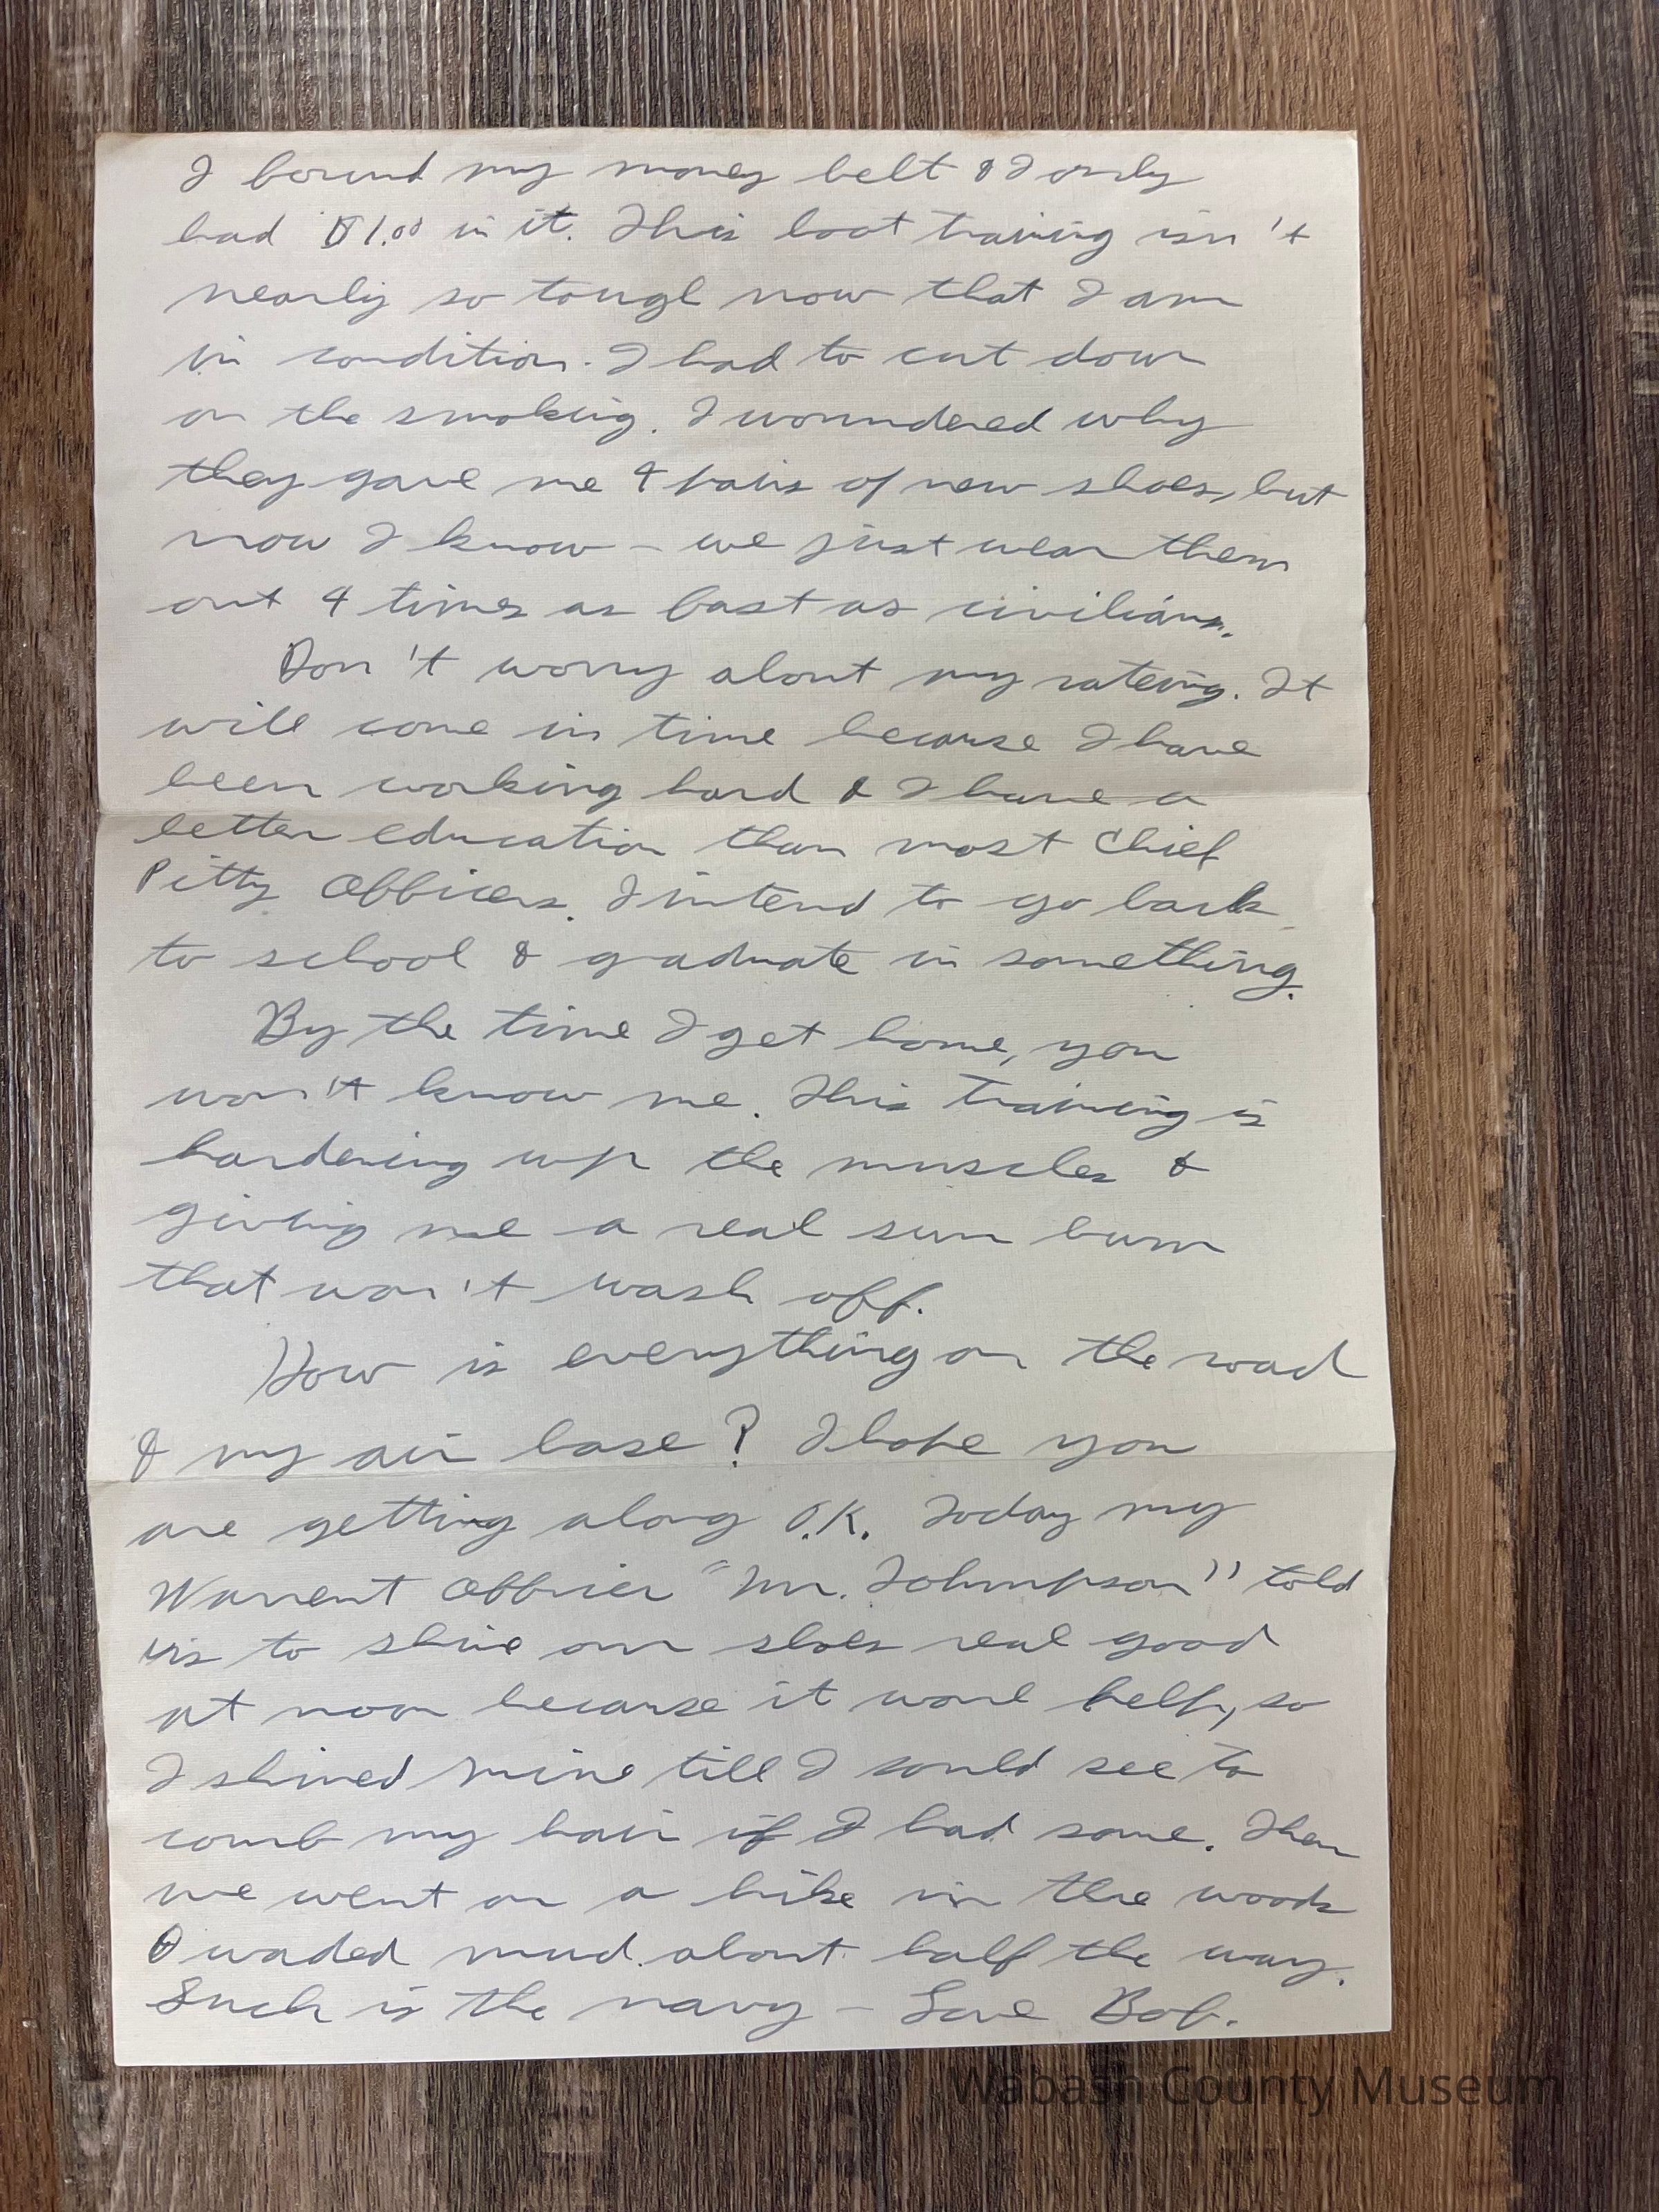 I found my money belt & I only
had $1.00 in it. This boot training isn't
nearly so tough now that I am
in condition. I had to cut down
on the smoking. I woundered why
they gave me 4 pairs of new shoes, but
now I know - we just wear them
out 4 times as fast as civilians.
Don't worry about my rateing. It
will come in time because I have
been working hard & I have a
better education than most Chief
Pitty Officers. I intend to go back
to school & graduate in something.
By the time I get home, you
won't know me. This training is
hardening up the muscles &
giving me a real sun burn
that won't wash off.
How is everything on the road
& my air base? I hope you
are getting along O.K. Today my
Warrent Officer "Mr. Johmpson" told
us to shine our shoes real good
at noon because it would help, so
I shined mine till I could see to
comb my hair if I had some. Then
we went on a hike in the woods
& waded mud about half the way.
Such is the navy - Love Bob.
Wabash County Museum